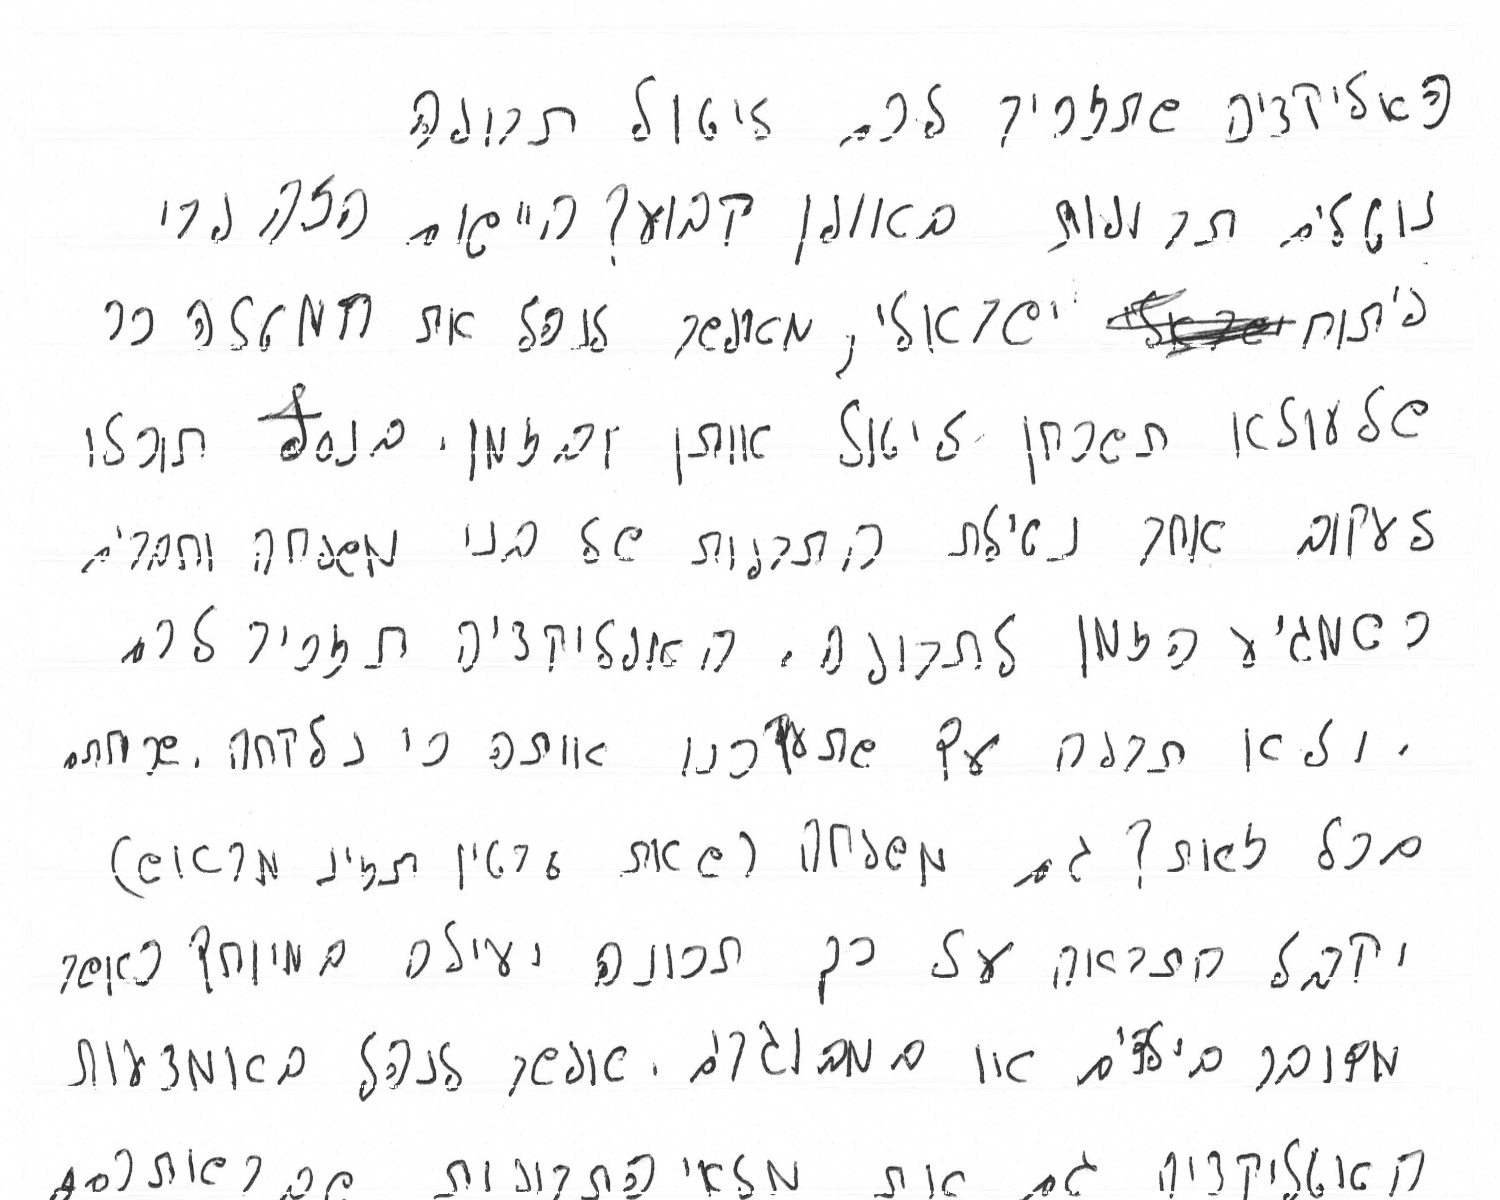 האפליקציה שתזכיר לכם ליטול תרופה
נוטלים תרופות באופן קבוע? היישום הזה פרי
פיתוח ישראלי, מאפשר לנהל את המטלה כך
שלעולא תשכחו ליטול אותן ובזמן. בנוסף תוכלו
לעקוב אחר נטילת התרופות של בני משפחה וחברים
כשמגיע הזמן לתרופה. האפליקציה תזכיר לכם
. ולא תרפה עד שתעדכנו אותה כי נלקחה. שכחתם
בכל זאת? גם משפחה (שאת פרטין תזינו מראוש)
יקבל התראה על כך תכונה יעילה במיוחד כאשר
מדובר בילדים או במבוגרים. אפשר לנהל באמצעות
האפליקציה גם את מלאי התרופות